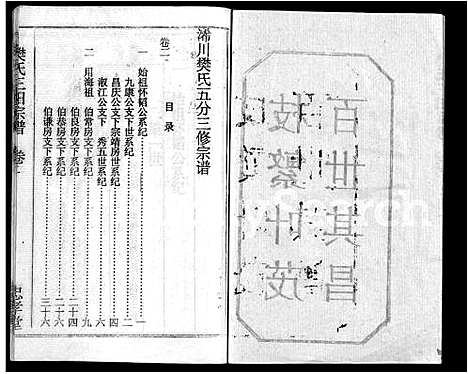 百世其昌
枝繁叶茂
浠川樊氏五分三修宗谱
卷二
目录
一 始祖怀韬公系纪 一
九康公支下世系纪 二
昌庆公支下宗靖房世系纪 四
淑江公支下 秀五世系纪 六
二 用海祖 伯常房支下系纪 九
伯良房支下系纪 二十四
伯恭房支下系纪 二十六
伯谦房支下系纪 三十六
樊氏三田宗谱
卷二
忠孝堂